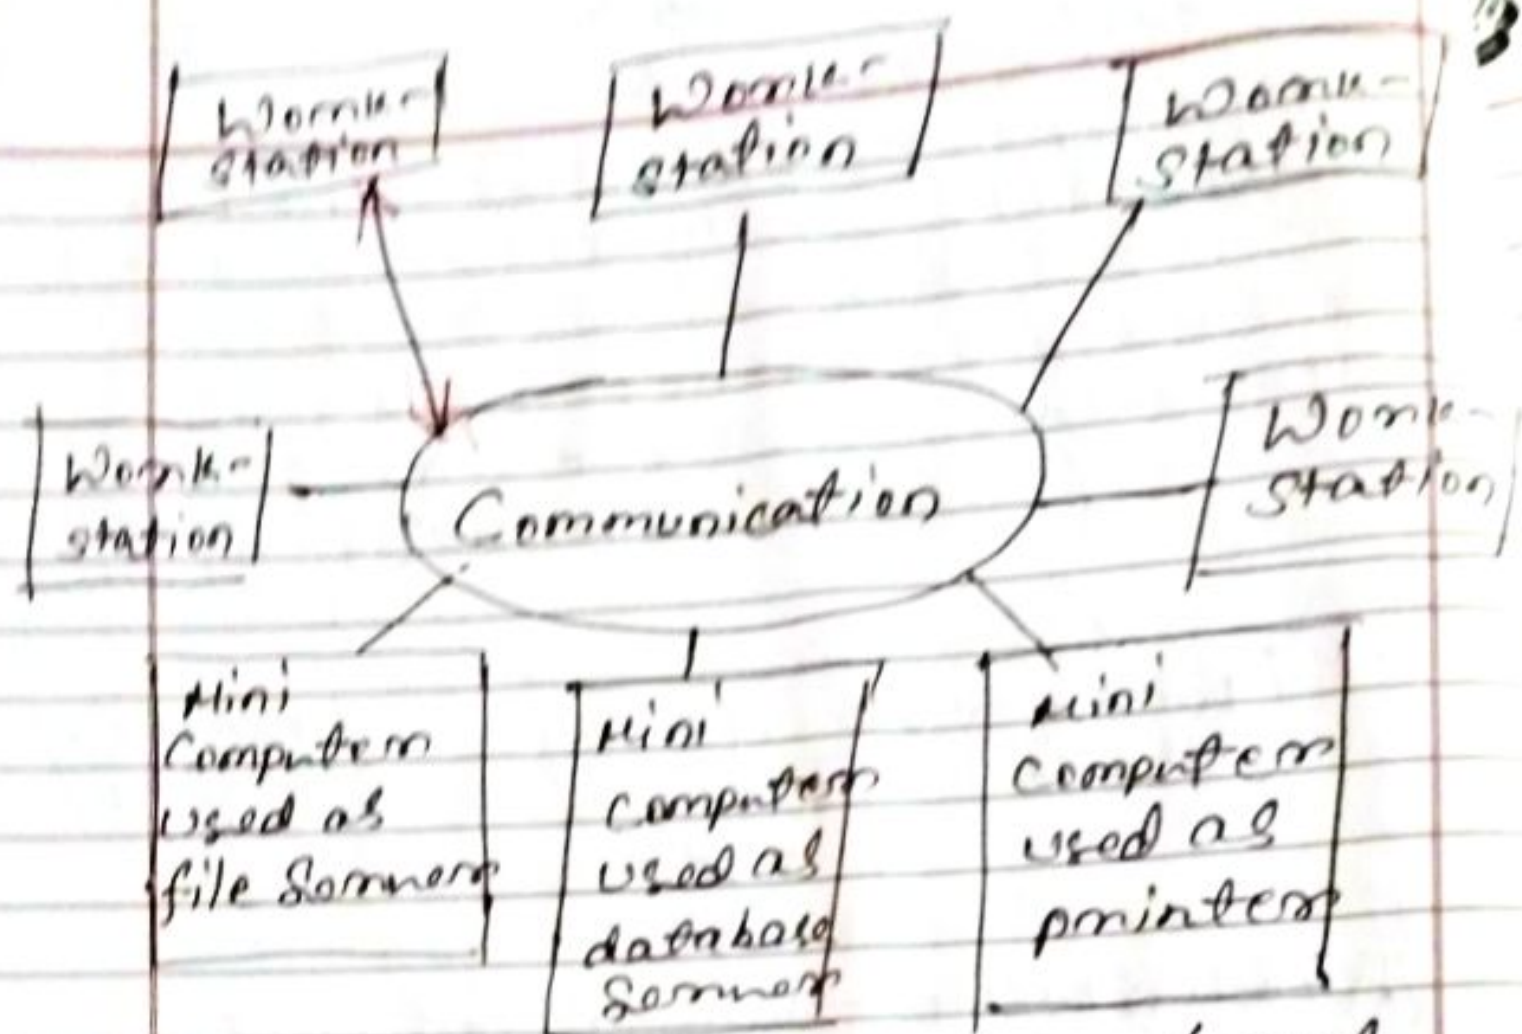 Work-
station
Work-
station
Work-
station
Work-
station
Communication
Work-
station
Mini
Computer
used as
file Server
Mini
Computer
used as
database
Server
Mini
Computer
used as
printer